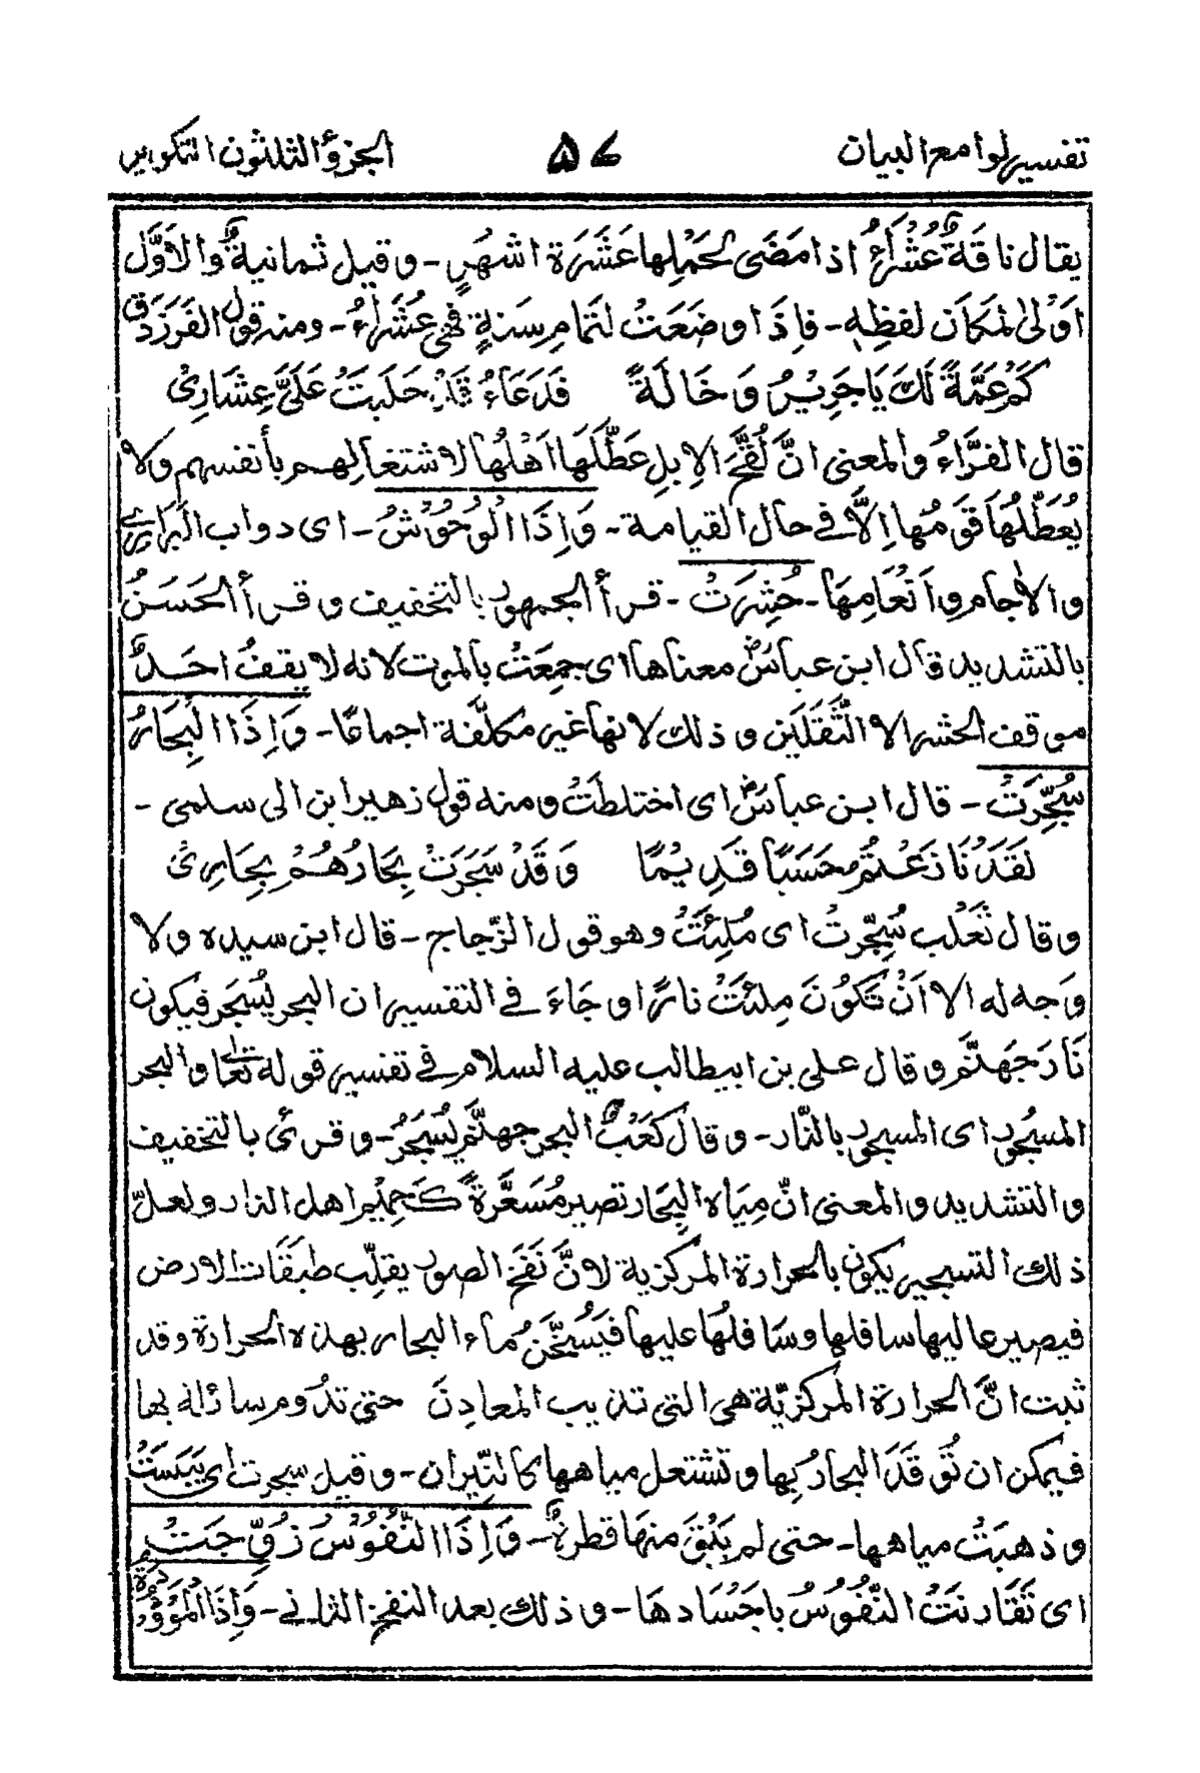 تفسير لوامع البيان ٥٧ الجزؤ الثلثون التكوير
يقال ناقةٌ عُشَرَاءُ اذا مَضَى لحَمْلِها عَشَرَة اشهُرٍ - وقيل ثمانيةٌ والاَوَّل
اَوْلىٰ لمكَان لفظِهٖ - فاِذَا وضَعَتْ لتمامِ سِنَةٍ فهي عُشَرَاءُ - ومنه قول الفَرَزدَق
كَمْ عَمَّةً لَكَ يَا جَرِيْرُ وَخَالَةً فَدَعَاءُ قَدْ حَلَبَتْ عَلَىَّ عِشَارِيْ
قال الفَرَّاءُ والمعنى انَّ لُقَّحَ الاِبِلِ عَطَّلَهَا اَهْلُها لاشتغالِهم بأنفسهم ولا
يُعَطِّلُهَا قَوْمُها اِلَّا في حال القيامة - وَاِذَا الْوُحُوْشُ - اى دواب البَرَارِي
والاٰجام واَنعَامِهَا - حُشِرَتْ - قرأ الجمهور بالتخفيف وقرأ الحَسَنُ
بالتشديد قال ابن عباسؓ معناها اى جمِعَتْ بالموت لانه لا يقفُ احَدٌ
موقف الحشر الا الثَّقَلَيْن وذلك لانها غير مكلَّفة اجماعًا - وَاِذَا الْبِحَارُ
سُجِّرَتْ - قال ابن عباسؓ اى اختلطَتْ ومنه قول زهير ابن ابى سلمى -
لَقَدْ نَازَعْتُمُ حَسَبًا قَدِيْمًا وَقَدْ سَجَرَتْ بِحَارُهُمْ بِحَارِىْ
وقال ثَعْلب سُجِّرتْ اى مُلِئَتْ وهو قول الزّجاج - قال ابن سيده ولا
وَجه له الا اَنْ تَكُوْنَ مِلئَتْ نارًا وجَاءَ في التفسير ان البحر يُسْجَر فيكون
نَارَ جَهنَّم وقال على بن ابيطالب عليه السلام في تفسير قوله تعالى والبحر
المسْجُور اى المسجور بالنّار - وقال كَعْبٌ البحر جهنَّم يُسْجَرُ - وقرئ بالتخفيف
والتشديد والمعنى انّ مِيَاه البِحَار تصير مُسَعَّرةً كَجمِيْم اهل النار ولعلّ
ذلك التسجير يكون بالحرارة المركزية لانَّ نَفْخَ الصور يقلِّب طبقَات الارض
فيصير عاليها سافلها وسَافلُها عليها فيَسُخَّنُ ماء البحار بهذه الحرارة وقد
ثبت انَّ الحرارة المركزيّة هى التى تذيب المعادِنَ حتى تدُوم سائلة بها
فيمكن ان تُوقَدَ البحارُ بها وتشتعل مياهها كالنِّيران - وقيل سجرت اى يَبَسَتْ
وذهبَتْ مياهها - حتى لم يَبْقَ منها قطرةٌ - وَاِذَا النُّفُوْسُ زُوِّجَتْ
اى تَقَارنَتْ النُّفُوسُ باَجْسَادها - وذلك بعد النفخ الثانى - وَاِذَا الْمَوْؤدَةُ